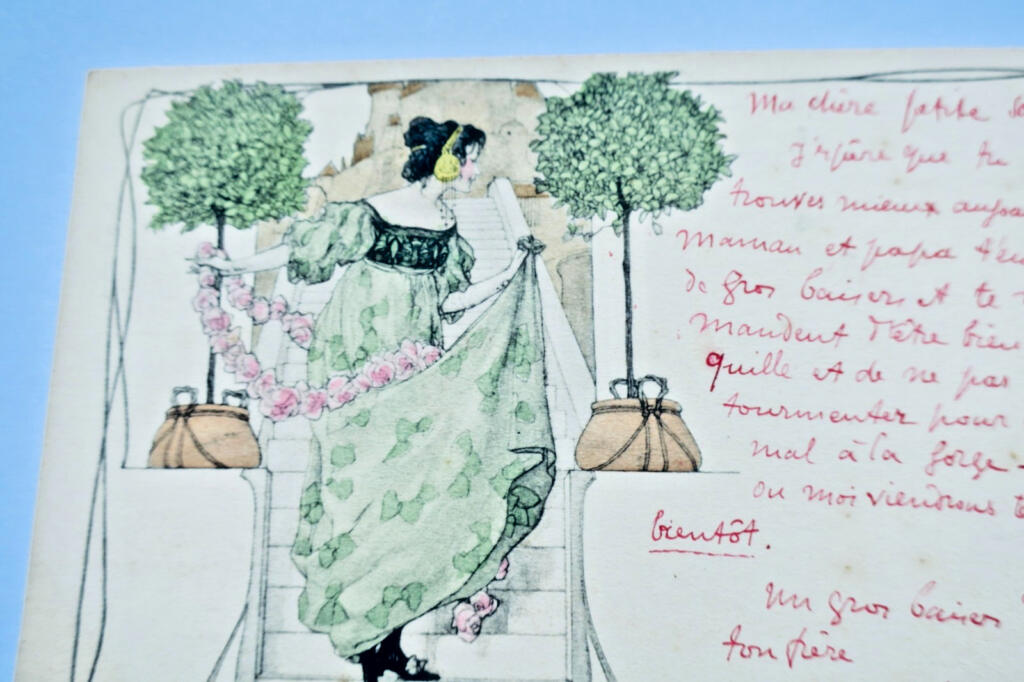 Ma chère petite
J'espère que tu
trouves mieux aujou
Maman et papa t'en
de gros baisers et te
mandent d'être bien
quille et de ne pas
tourmenter pour
mal à la gorge -
ou moi viendrons te
bientôt.
Un gros baiser
ton frère